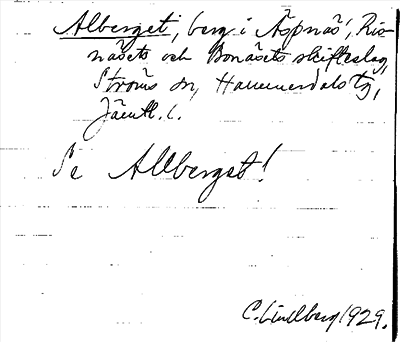 Alberget, berg i Äspnäs, Ris-
näsets och Bonäsets skifteslag,
Ströms sn, Hammerdals tg,
Jämtl. l.
Se Allberget!
C. Lindberg 1929.